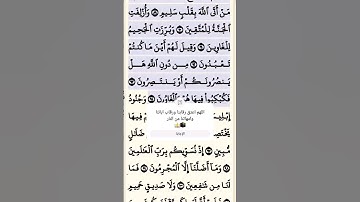 مَنْ أَتَى ٱللَّهَ بِقَلْبٍ سَلِيمٍ ۝ وَأُزْلِفَتِ
ٱلْجَنَّةُ لِلْمُتَّقِينَ ۝ وَبُرِّزَتِ ٱلْجَحِيمُ
لِلْغَاوِينَ ۝ وَقِيلَ لَهُمْ أَيْنَ مَا كُنتُمْ
تَعْبُدُونَ ۝ مِن دُونِ ٱللَّهِ هَلْ
يَنصُرُونَكُمْ أَوْ يَنتَصِرُونَ ۝
فَكُبْكِبُوا۟ فِيهَا هُمْ وَٱلْغَاوُۥنَ ۝ وَجُنُودُ
اللهم اعتق رقابنا ورقاب ابائنا
وامهاتنا من النار
فِيهَا
ضَلَٰلٍ
مُّبِينٍ ۝ إِذْ نُسَوِّيكُم بِرَبِّ ٱلْعَٰلَمِينَ
۝ وَمَآ أَضَلَّنَآ إِلَّا ٱلْمُجْرِمُونَ ۝ فَمَا
لَنَا مِن شَٰفِعِينَ ۝ وَلَا صَدِيقٍ حَمِيمٍ